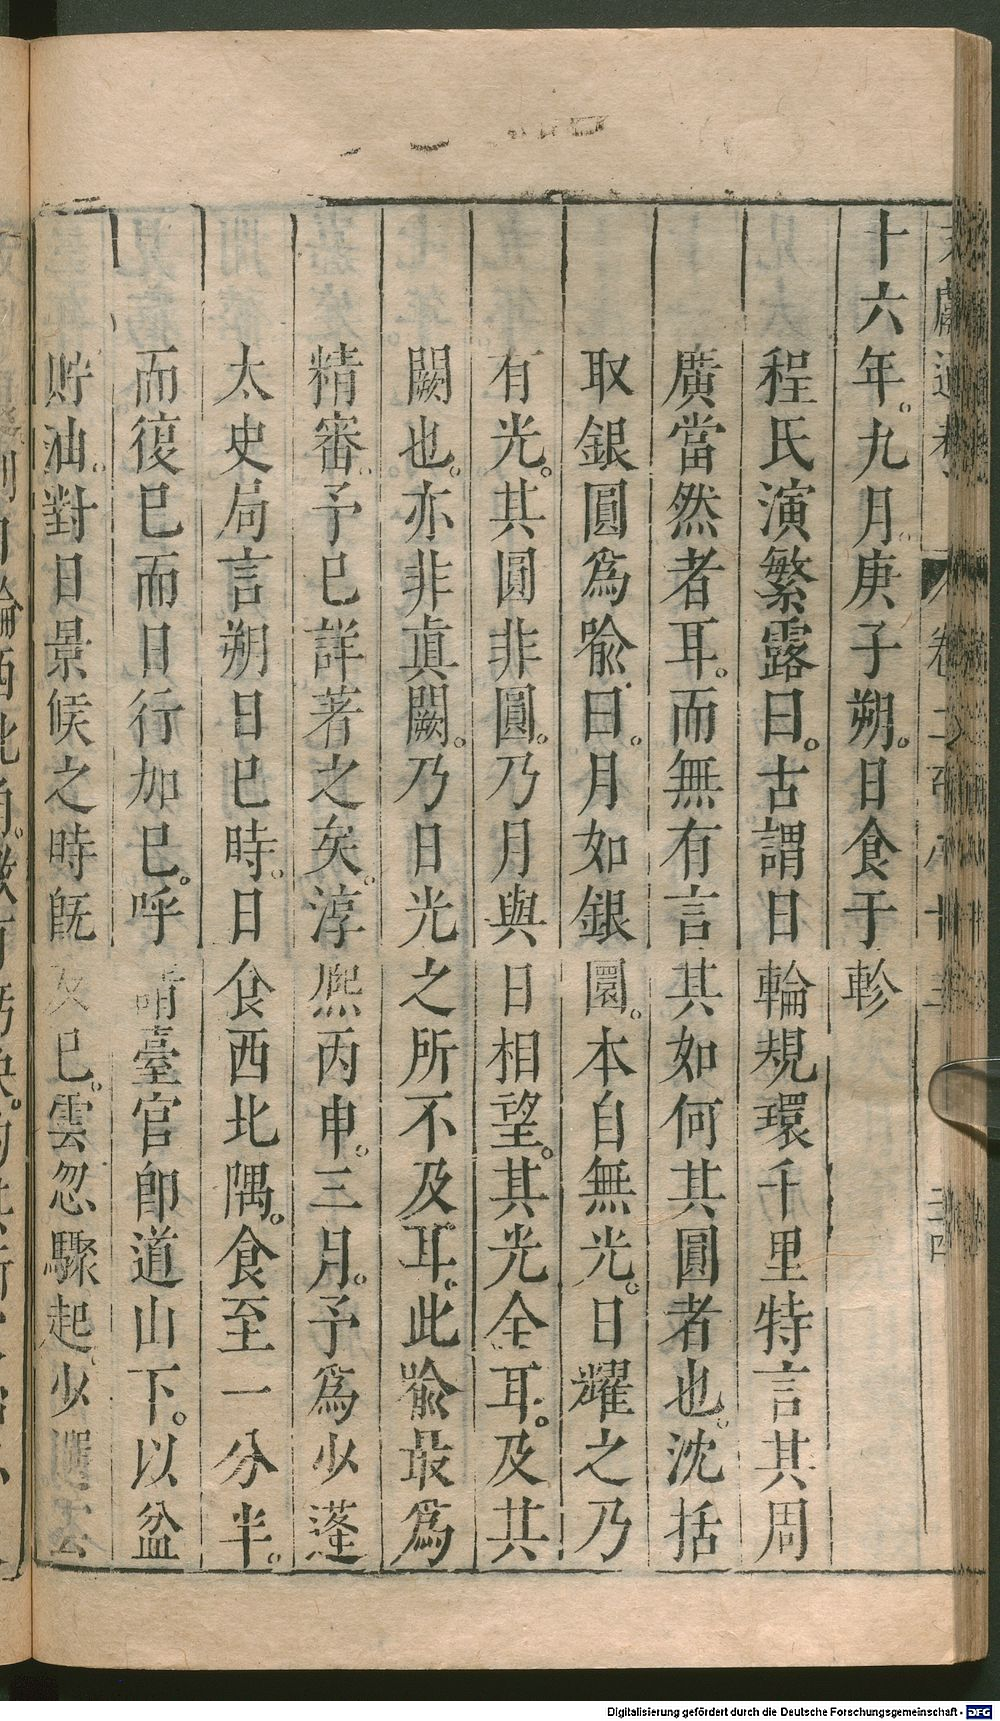 十六年。九月。庚子朔。日食于軫
程氏演繁露曰。古謂日輪規環千里特言其周
廣當然者耳。而無有言其如何其圓者也。沈括
取銀圓爲喻曰。月如銀圜。本自無光。日耀之乃
有光。其圓非圓。乃月與日相望。其光全耳。及其
闕也。亦非眞闕。乃日光之所不及耳。此喻最爲
精審。予已詳著之矣。淳熈丙申。三月。予爲少蓬
太史局言朔日巳時。日食西北隅。食至一分半。
而復巳而日行加巳。呼請臺官卽道山下。以盆
貯油。對日景候之時旣及巳。雲忽驟起。少選雲
Digitalisierung gefördert durch die Deutsche Forschungsgemeinschaft - DFG